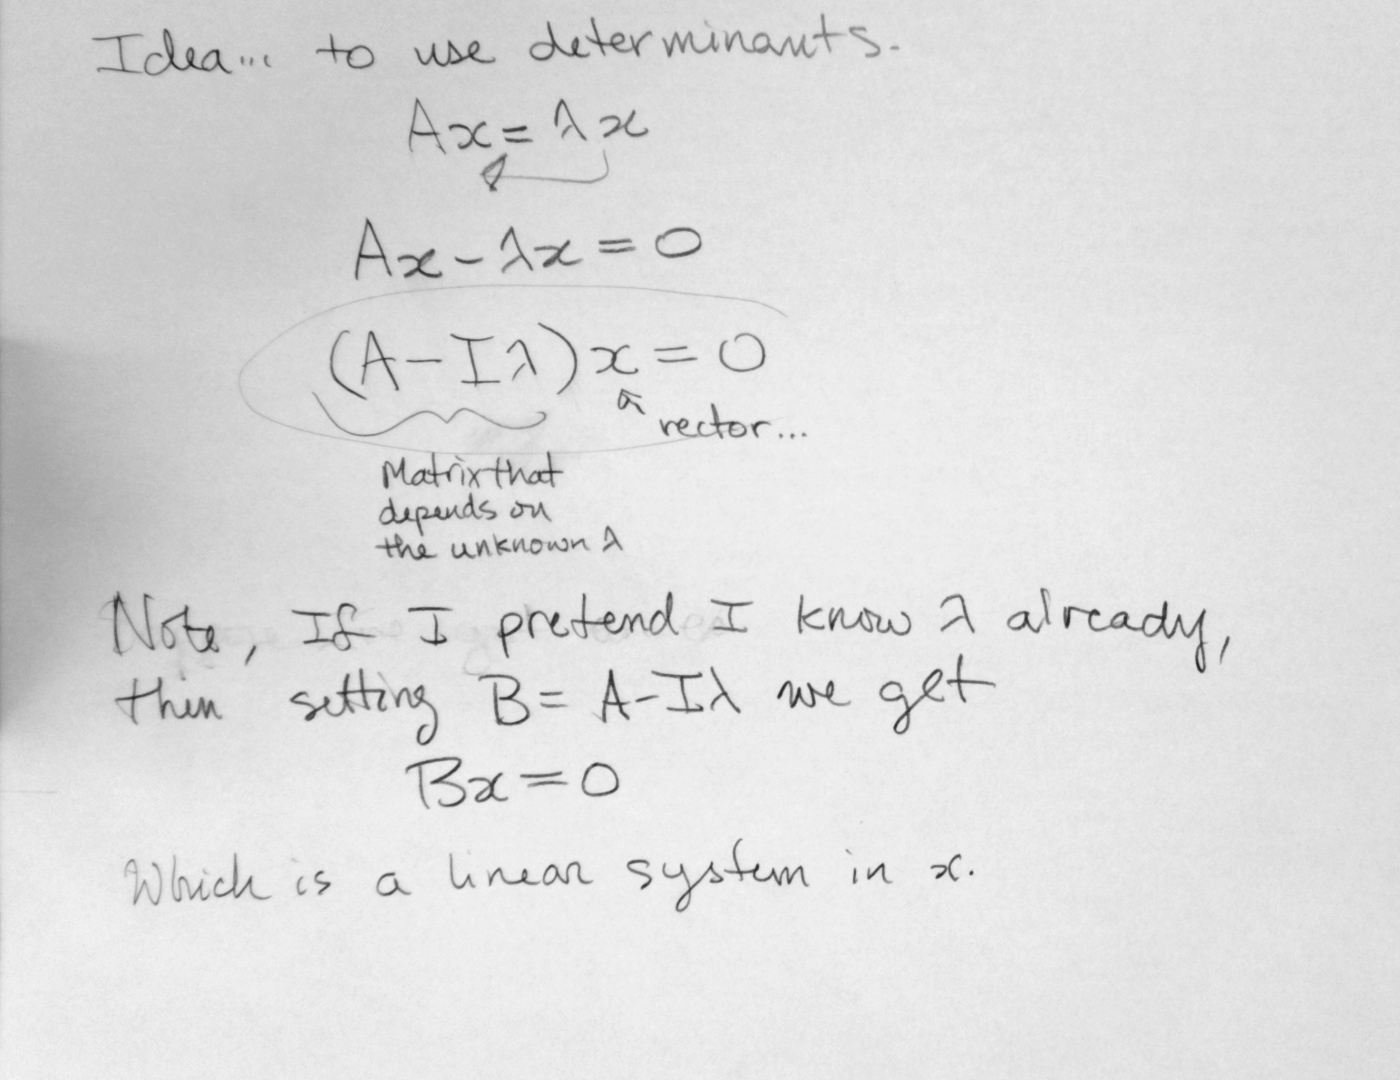 Idea... to use determinants.
Ax = λx
Ax - λx = 0
(A - Iλ)x = 0
vector...
Matrix that
depends on
the unknown λ
Note, If I pretend I know λ already,
then setting B = A - Iλ we get
Bx = 0
Which is a linear system in x.